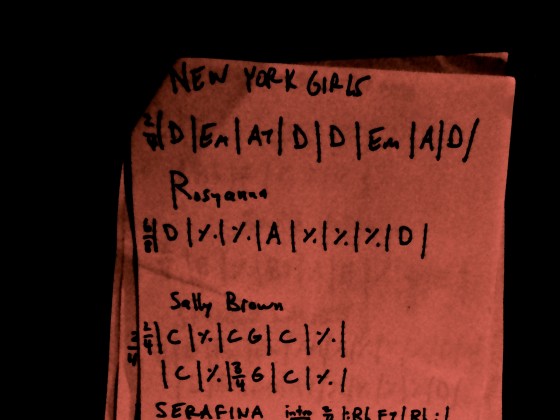 NEW YORK GIRLS
2/4 | D | Em | A7 | D | D | Em | A | D /
Rosyanna
6/8 | D | ٪ | ٪ | A | ٪ | ٪ | ٪ | D |
Sally Brown
2/4 | C | ٪ | C G | C | ٪ |
| C | ٪ | 3/4 G | C | ٪ |
SERAFINA intro